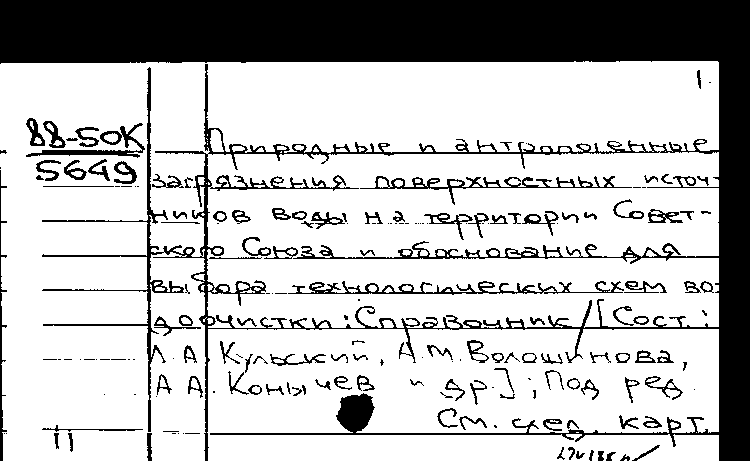 1.
88-50К
5649
Природные и антропогенные
загрязнения поверхностных источ-
ников воды на территории Совет-
ского Союза и обоснование для
выбора технологических схем во-
доочистки: Справочник / [Сост.:
Л.А. Кульский, А.М. Волошинова,
А.А. Конычев и др.]; Под ред.
См. след. карт.
11